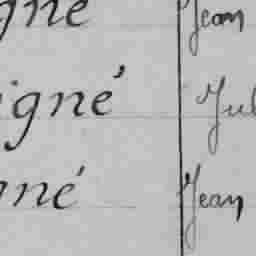 igné Jean
igné Jul
gné Jean